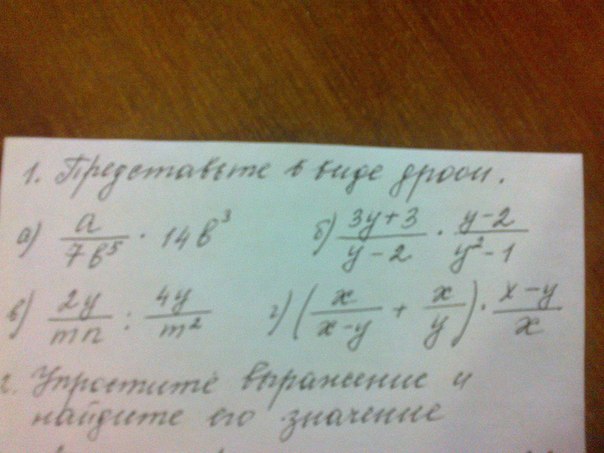 1. Представьте в виде дроби.
а) a/7b⁵ · 14b³ б) 3y+3/y-2 · y-2/y²-1
в) 2y/mn : 4y/m² г) (x/x-y + x/y) · x-y/x
2. Упростите выражение и
найдите его значение